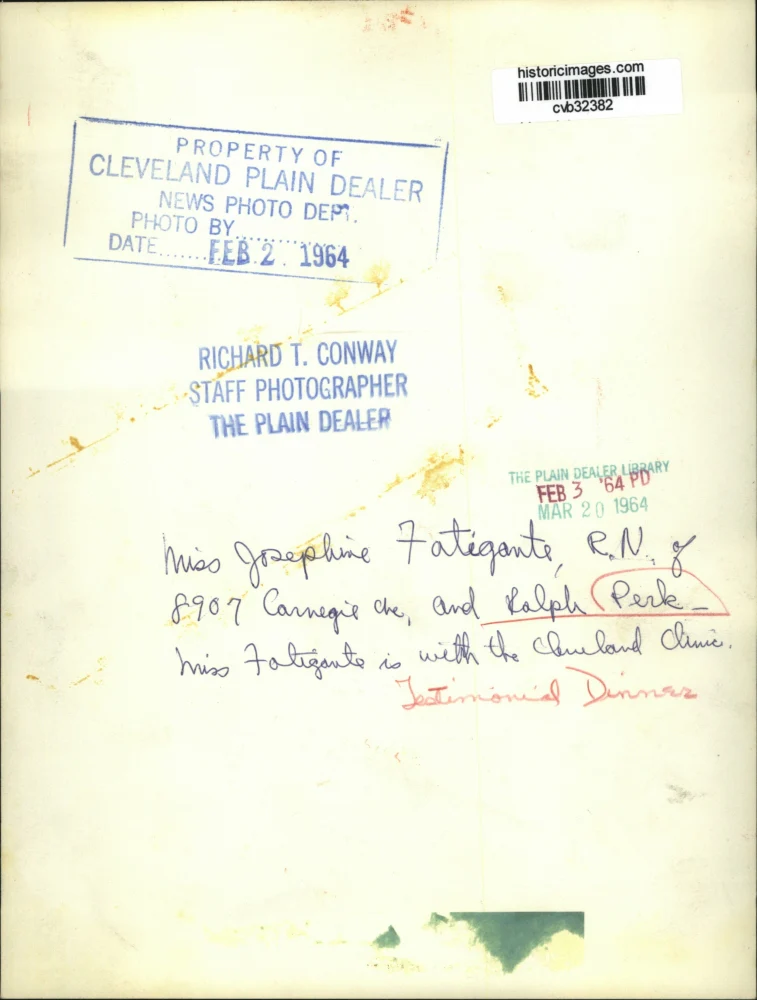 historicimages.com
cvb32382
PROPERTY OF
CLEVELAND PLAIN DEALER
NEWS PHOTO DEPT.
PHOTO BY..............
DATE.......FEB 2 1964
RICHARD T. CONWAY
STAFF PHOTOGRAPHER
THE PLAIN DEALER
THE PLAIN DEALER LIBRARY
FEB 3 '64 PD
MAR 20 1964
Miss Josephine Fatigante, R.N. of
8907 Carnegie Ave, and Ralph Perk -
Miss Fatigante is with the Cleveland Clinic.
Testimonial Dinner